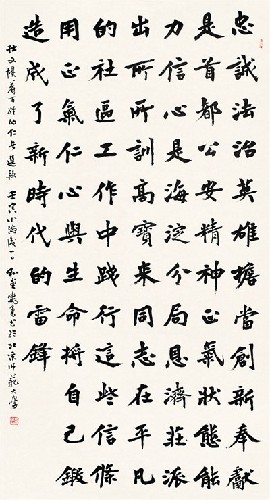 忠诚法治英雄擔當創新奉獻
是首都公安精神正氣狀態能
力信心是海淀分局恩濟莊派
出所所訓高寶来同志在平凡
的社區工作中踐行這些信條
用正氣仁心與生命将自己鍛
造成了新時代的雷鋒